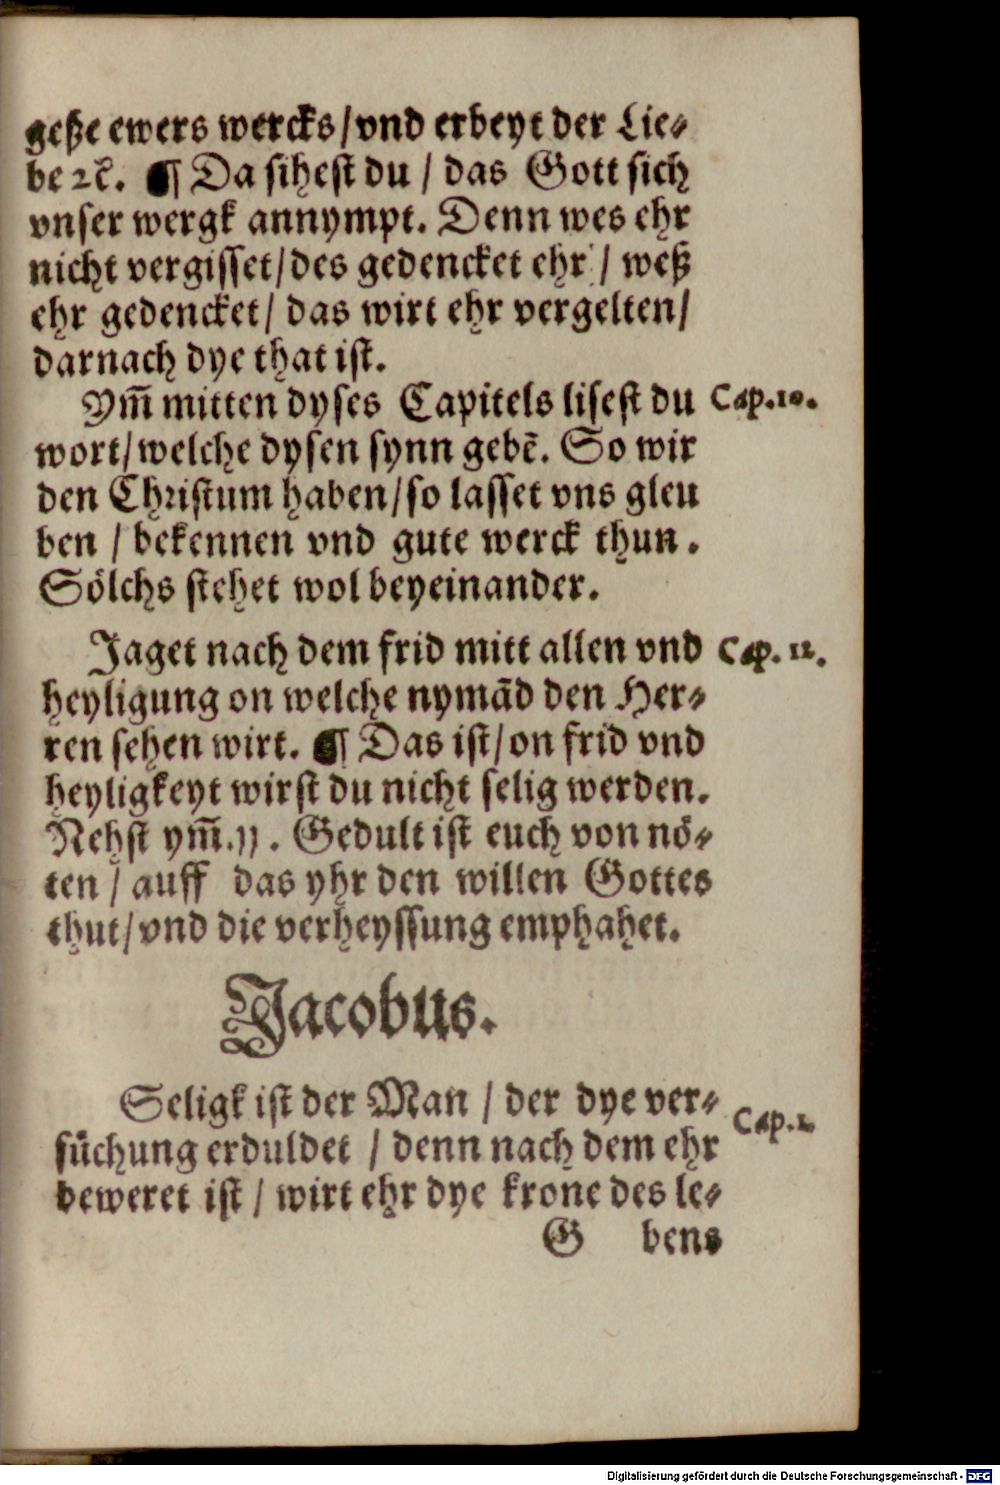 geße ewers wercks/vnd erbeyt der Lie⸗
be ꝛc̃. ¶ Da sihest du / das Gott sich
vnser wergk annympt. Denn wes ehr
nicht vergisset/des gedencket ehr / weß
ehr gedencket/ das wirt ehr vergelten/
darnach dye that ist.
Ym̃ mitten dyses Capitels lisest du Cap.10.
wort/welche dysen synn gebẽ. So wir
den Christum haben/so lasset vns gleu
ben / bekennen vnd gute werck thun.
Sölchs stehet wol beyeinander.
Jaget nach dem frid mitt allen vnd Cap. 12.
heyligung on welche nymãd den Her⸗
ren sehen wirt. ¶ Das ist/on frid vnd
heyligkeyt wirst du nicht selig werden.
Nehst ym̃.11. Gedult ist euch von nö⸗
ten / auff das yhr den willen Gottes
thut/vnd die verheyssung emphahet.
Jacobus.
Seligk ist der Man / der dye ver⸗ Cap.1.
sůchung erduldet / denn nach dem ehr
beweret ist / wirt ehr dye krone des le⸗
G bens
Digitalisierung gefördert durch die Deutsche Forschungsgemeinschaft - DFG